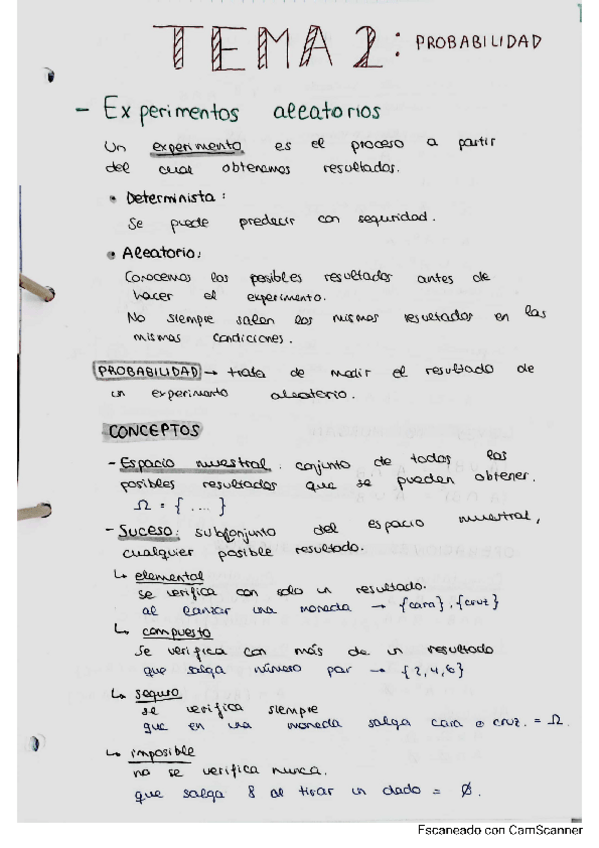 TEMA 2: PROBABILIDAD
- Experimentos aleatorios
Un experimento es el proceso a partir
del cual obtenemos resultados.
• Determinista:
Se puede predecir con seguridad.
• Aleatorio:
Conocemos los posibles resultados antes de
hacer el experimento.
No siempre salen los mismos resultados en las
mismas condiciones.
PROBABILIDAD → trata de medir el resultado de
un experimento aleatorio.
CONCEPTOS
- Espacio muestral: conjunto de todos los
posibles resultados que se pueden obtener.
Ω = { .... }
- Suceso: subconjunto del espacio muestral,
cualquier posible resultado.
↳ elemental
se verifica con solo un resultado.
al lanzar una moneda → {cara}, {cruz}
↳ compuesto
Se verifica con más de un resultado
que salga número par → {2,4,6}
↳ seguro
se verifica siempre
que en una moneda salga cara o cruz. = Ω.
↳ imposible
no se verifica nunca.
que salga 8 al tirar un dado = Ø.
Escaneado con CamScanner